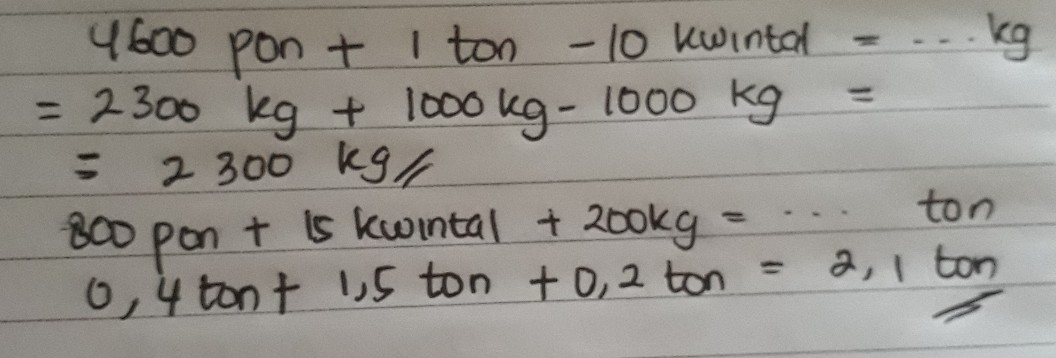 4600 pon + 1 ton - 10 kwintal = ... kg
= 2300 kg + 1000 kg - 1000 kg =
= 2300 kg //
800 pon + 15 kwintal + 200 kg = ... ton
0,4 ton + 1,5 ton + 0,2 ton = 2,1 ton //